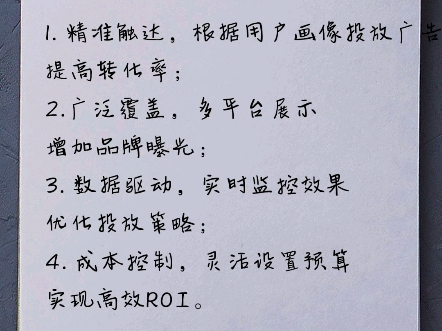 1. 精准触达，根据用户画像投放广告
提高转化率；
2.广泛覆盖，多平台展示
增加品牌曝光；
3. 数据驱动，实时监控效果
优化投放策略；
4. 成本控制，灵活设置预算
实现高效ROI。